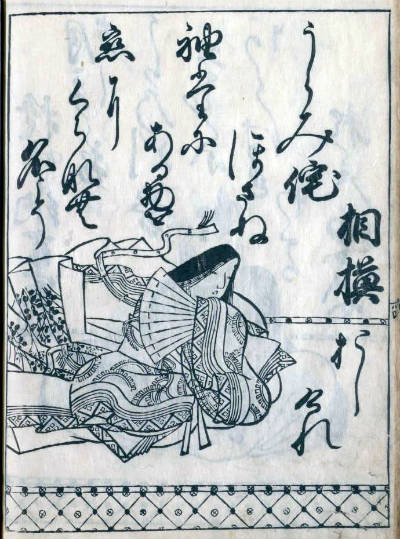 相摸
うらみ侘
ほさぬ
袖たに
ある物を
恋に
くちなむ
名こそ
おし
けれ